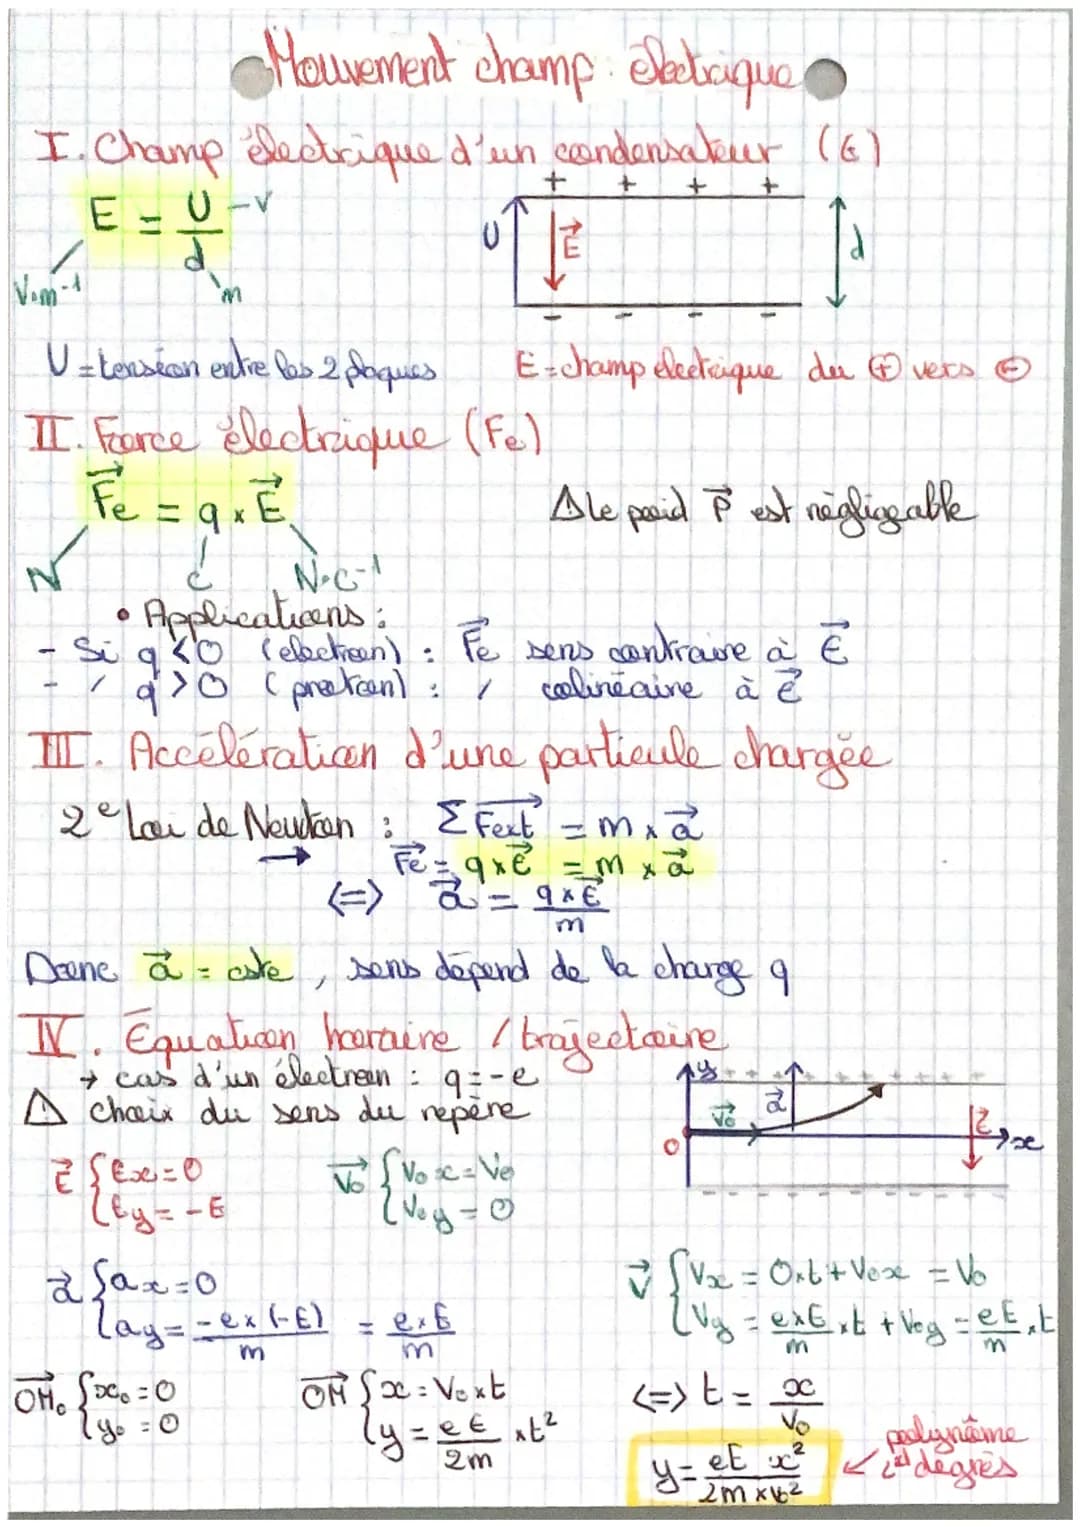 Mouvement champ électrique
I. Champ électrique d'un condensateur (E)
E = U/d
V
V.m⁻¹
m
+ + + +
U
E⃗
d
- - - -
U = tension entre les 2 plaques
E = champ électrique du ⊕ vers ⊖
II. Force électrique (Fe)
F⃗e = q x E⃗
N
C
N.C⁻¹
⚠ Le poid P⃗ est négligeable
• Applications :
- Si q<0 (electron) : F⃗e sens contraire à E⃗
- / q>0 (proton) : / colinéaire à E⃗
III. Accélération d'une particule chargée
2e Loi de Newton : Σ F⃗ext = m x a⃗
→ F⃗e = q x E⃗ = m x a⃗
<=> a⃗ = q x E⃗ / m
Donc a⃗ = cste, sens dépend de la charge q
IV. Equation horaire / trajectoire
→ cas d'un électron : q=-e
⚠ choix du sens du repère
y + + + + + + + + +
V⃗o
a⃗
E⃗
O
x
- - - - - - - - -
E⃗ { Ex=0
Ey = -E
V⃗o { Vox = Vo
Voy = 0
a⃗ { ax = 0
ay = -e x (-E) / m = e x E / m
V⃗ { Vx = 0xt + Vox = Vo
Vy = exE/m xt + Voy = eE/m xt
OM⃗o { xo = 0
yo = 0
OM⃗ { x = Vo x t
y = eE/2m x t²
<=> t = x/Vo
y = eE x² / 2m x Vo²
← polynôme
2nd degrés